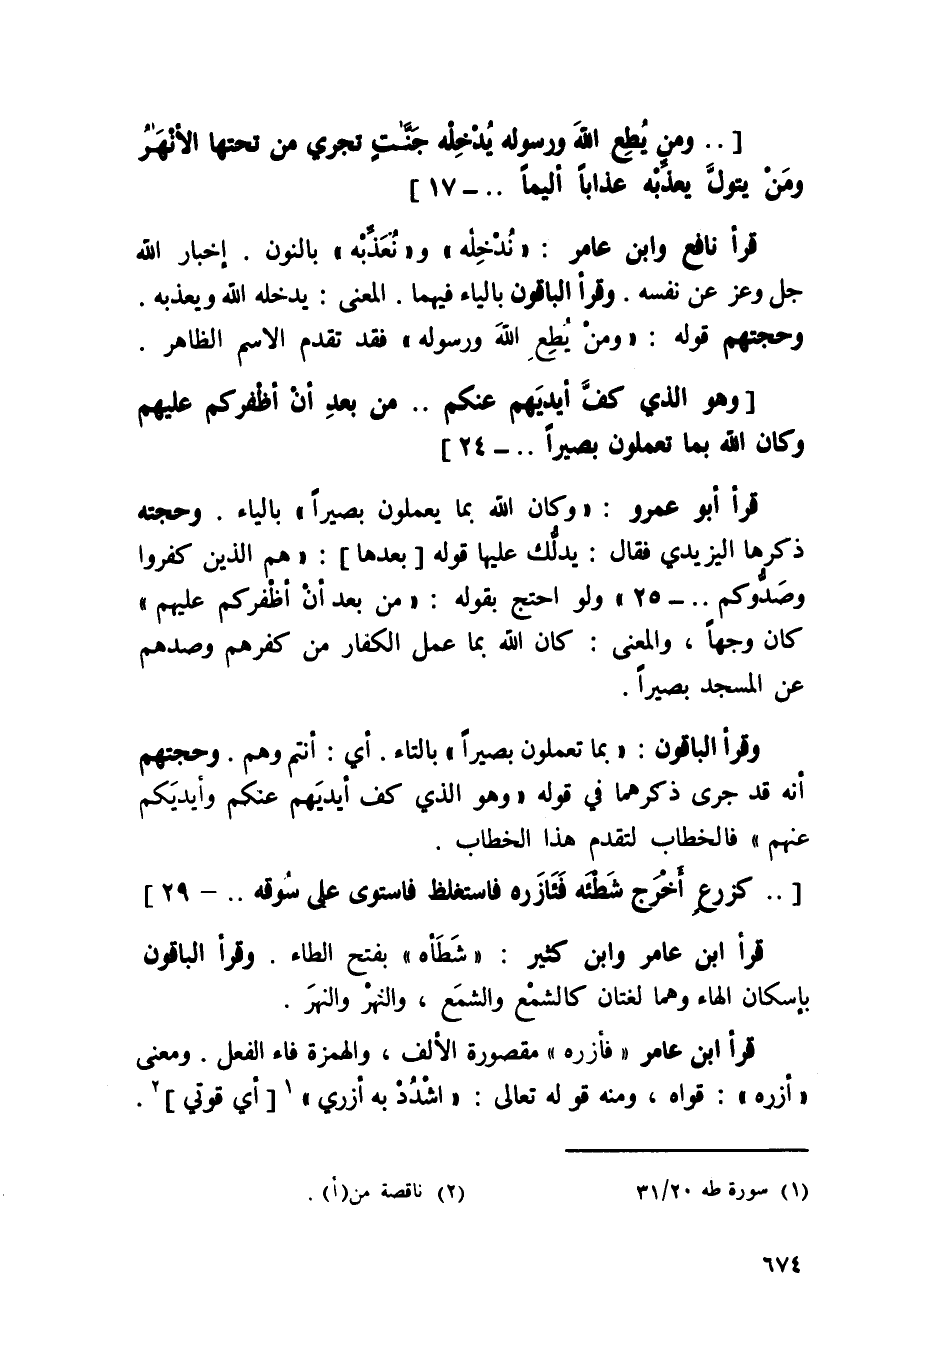 [ .. ومن يُطِعِ اللهَ ورسوله يُدْخِلْه جَنَّـٰتٍ تجري من تحتها الأنْهَـٰرُ
ومَنْ يتولَّ يعذِّبْه عذاباً أليماً .. ــ ١٧ ]
قرأ نافع وابن عامر : « نُدْخِلْه » و« نُعَذِّبْه » بالنون . إخبار الله
جل وعز عن نفسه . وقرأ الباقون بالياء فيهما . المعنى : يدخله الله ويعذبه .
وحجتهم قوله : « ومنْ يُطِعِ اللهَ ورسوله » فقد تقدم الاسم الظاهر .
[ وهو الذي كفَّ أيديَهم عنكم .. من بعدِ أنْ أظْفركم عليهم
وكان الله بما تعملون بصيراً .. ــ ٢٤ ]
قرأ أبو عمرو : « وكان الله بما يعملون بصيراً » بالياء . وحجته
ذكرها اليزيدي فقال : يدلُّك عليها قوله [ بعدها ] : « هم الذين كفروا
وصَدُّوكم .. ــ ٢٥ » ولو احتج بقوله : « من بعد أنْ أظْفركم عليهم »
كان وجهاً ، والمعنى : كان الله بما عمل الكفار من كفرهم وصدهم
عن المسجد بصيراً .
وقرأ الباقون : « بما تعملون بصيراً » بالتاء . أي : أنتم وهم . وحجتهم
أنه قد جرى ذكرهما في قوله « وهو الذي كف أيديَهم عنكم وأيديَكم
عنهم » فالخطاب لتقدم هذا الخطاب .
[ .. كزرعٍ أَخْرَج شَطْئَه فَئَازَره فاستغلظ فاستوى على سُوقه .. – ٢٩ ]
قرأ ابن عامر وابن كثير : « شَطَأْه » بفتح الطاء . وقرأ الباقون
بإسكان الهاء وهما لغتان كالشمْع والشمَع ، والنهْر والنهَر .
قرأ ابن عامر « فأزره » مقصورة الألف ، والهمزة فاء الفعل . ومعنى
« أزره » : قواه ، ومنه قو له تعالى : « اشْدُدْ به أزري » ١ [ أي قوتي ] ٢ .
(١) سورة طه ٣١/٢٠ (٢) ناقصة من (أ) .
٦٧٤